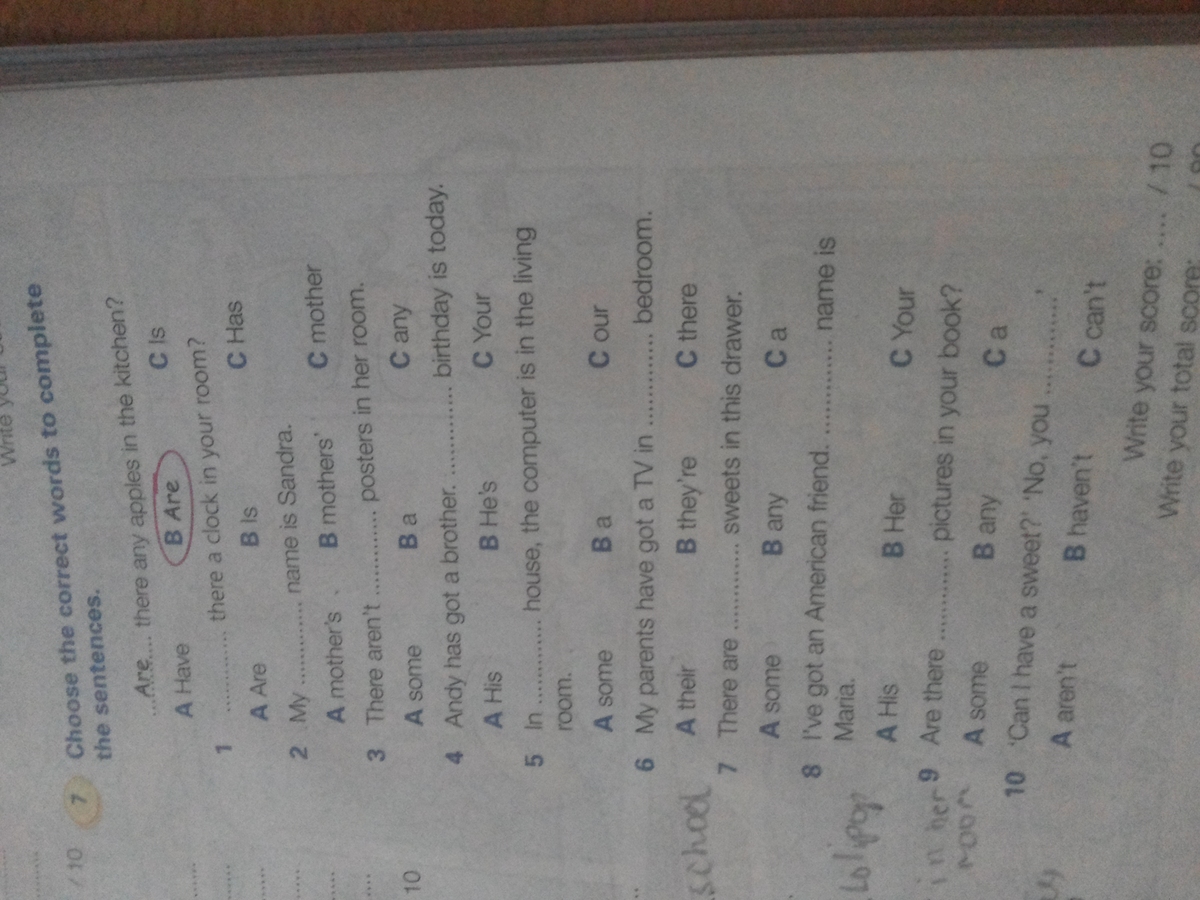 Write your
/ 10
7 Choose the correct words to complete
the sentences.
....Are.... there any apples in the kitchen?
A Have B Are C Is
1 ............ there a clock in your room?
A Are B Is C Has
2 My ............ name is Sandra.
A mother's B mothers' C mother
3 There aren't ............ posters in her room.
A some B a C any
4 Andy has got a brother. ............ birthday is today.
A His B He's C Your
5 In ............ house, the computer is in the living
room.
A some B a C our
6 My parents have got a TV in ............ bedroom.
A their B they're C there
7 There are ............ sweets in this drawer.
A some B any C a
8 I've got an American friend. ............ name is
Maria.
A His B Her C Your
9 Are there ............ pictures in your book?
A some B any C a
10 'Can I have a sweet?' 'No, you .............'
A aren't B haven't C can't
Write your score: .... / 10
Write your total score:
10
school
Lolipop
in her
room